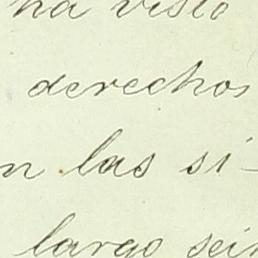 ha visto
derechos
n las si-
largo sein